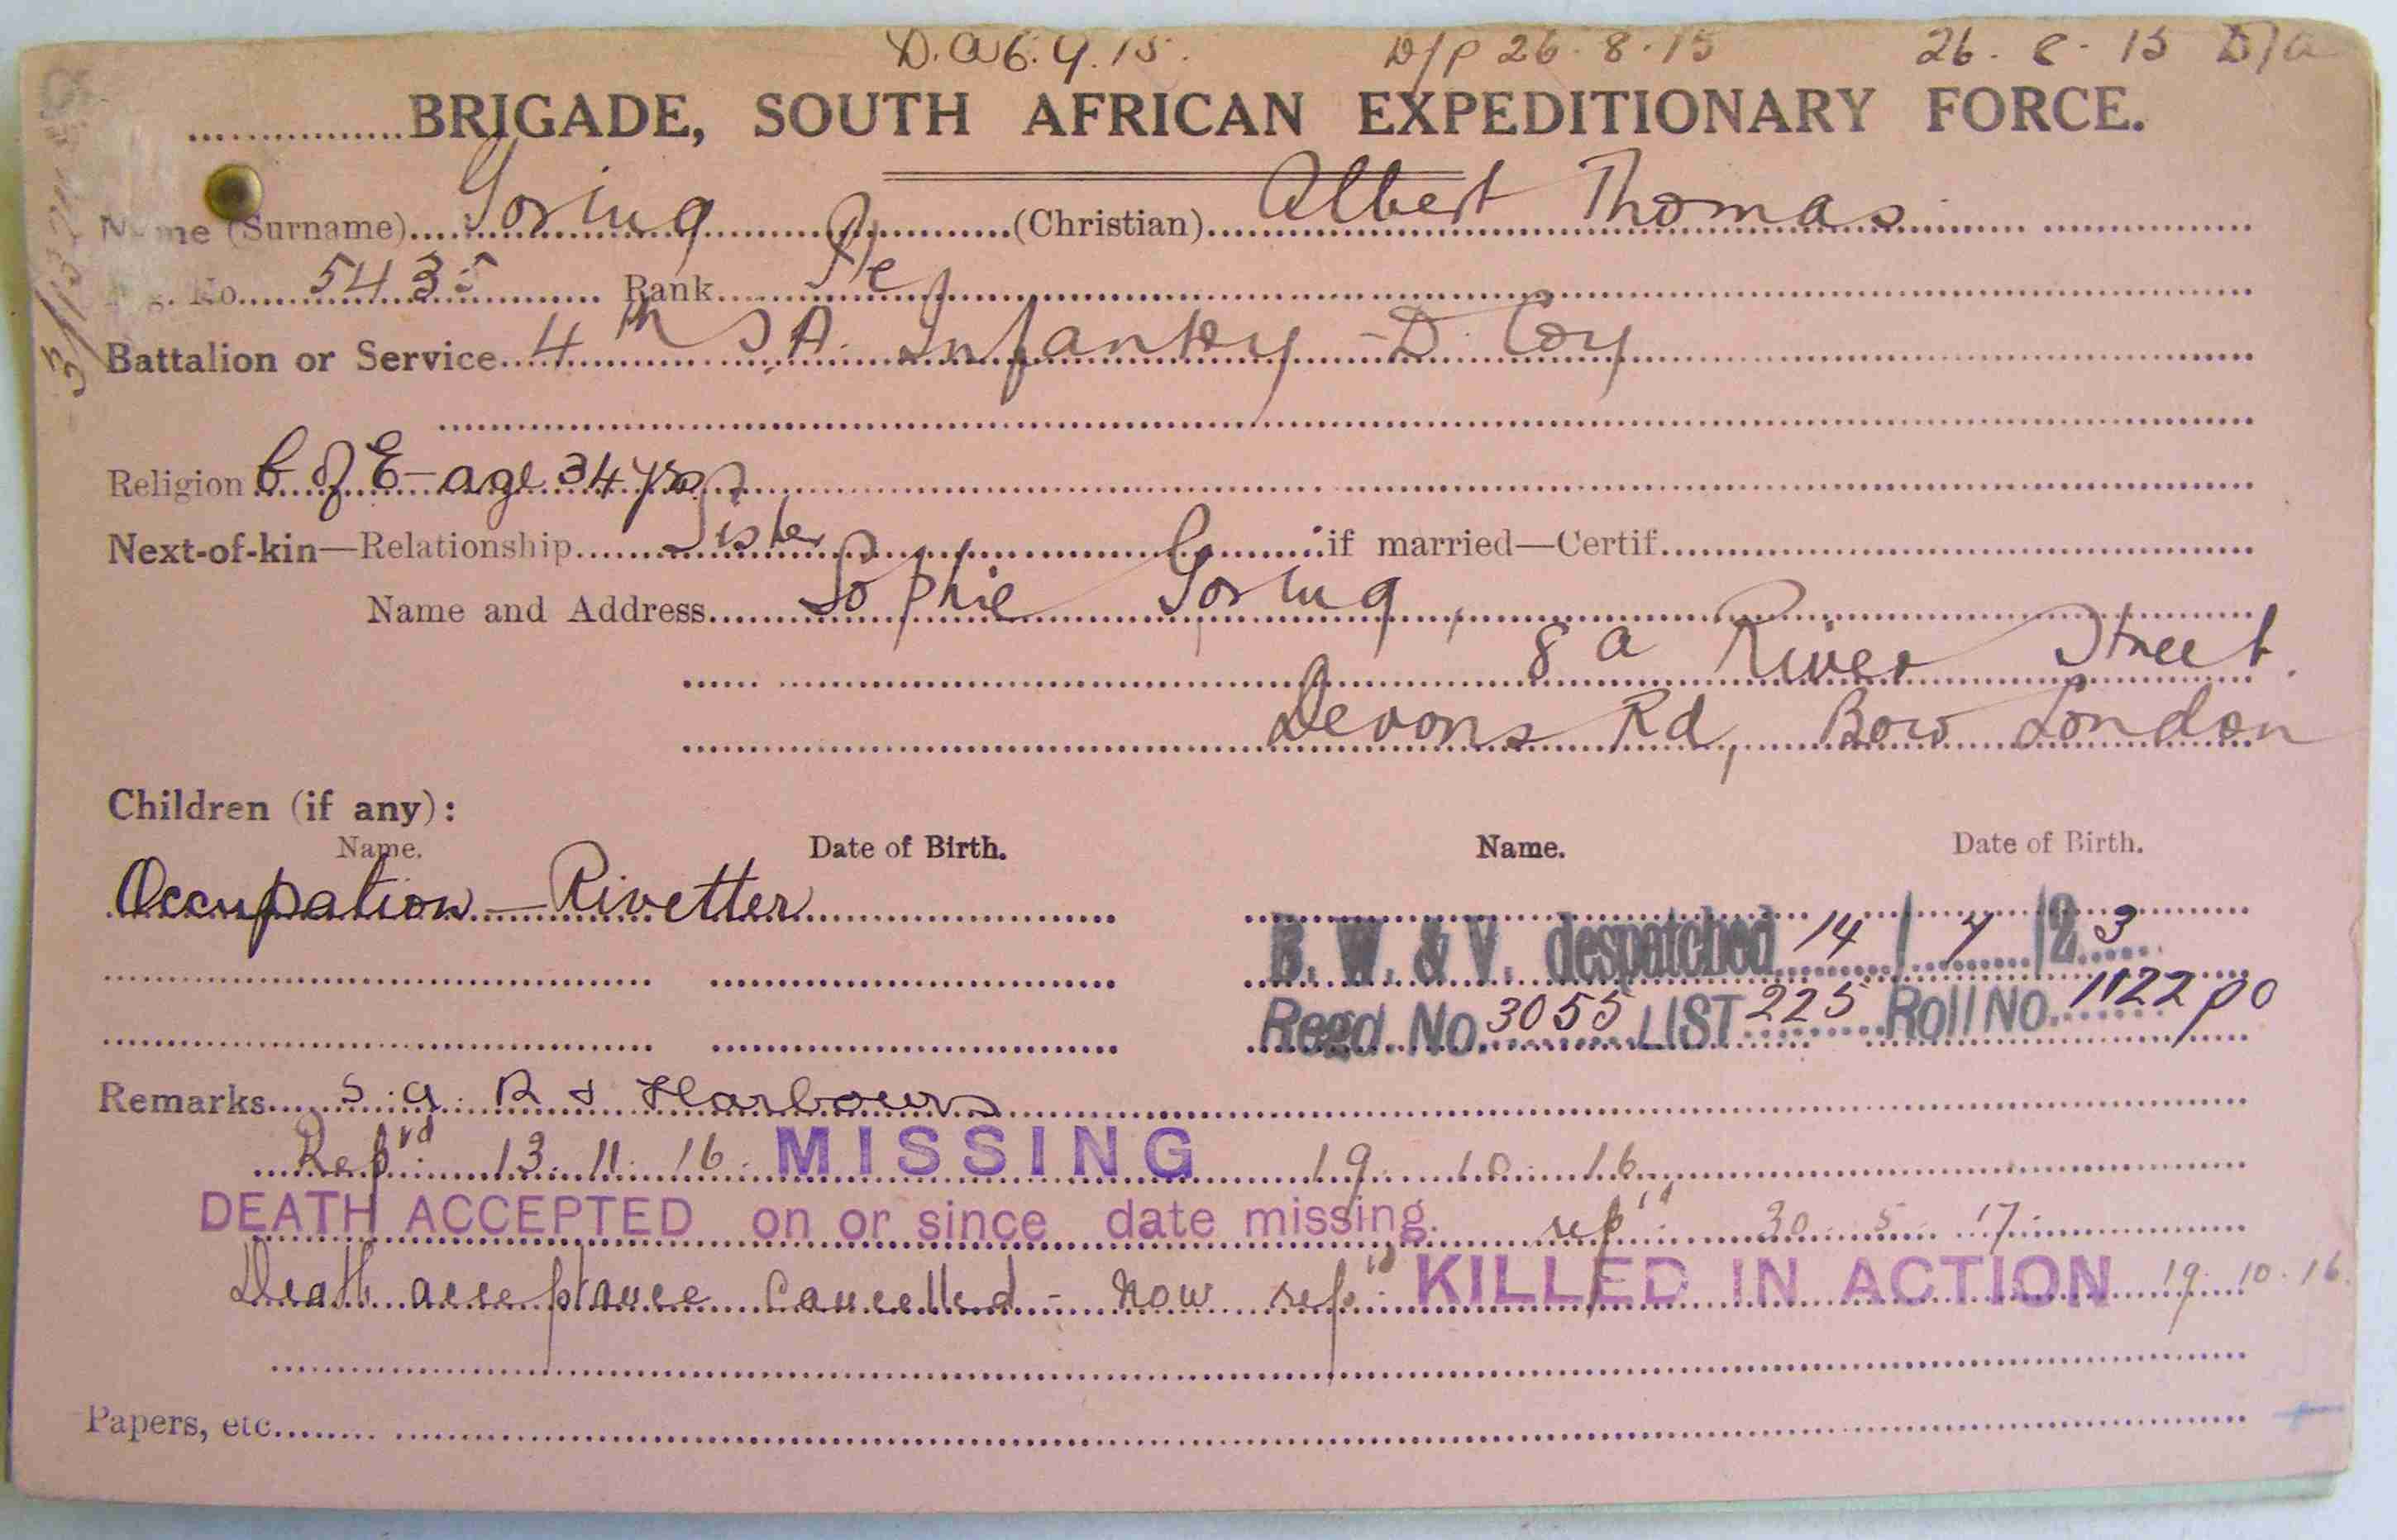 D.A 6.9.15. D/P 26.8.15 26.8.15 D/A
BRIGADE, SOUTH AFRICAN EXPEDITIONARY FORCE.
Name (Surname) Goring (Christian) Albert Thomas
Reg. No. 5435 Rank Pte
Battalion or Service 4th S A. Infantry - D. Coy
Religion C of E - age 34 yrs
Next-of-kin—Relationship Sister if married—Certif.
Name and Address Sophie Goring,
8a River Street.
Devons Rd, Bow London
Children (if any):
Name. Date of Birth. Name. Date of Birth.
Occupation - Rivetter
B. W. & V. despatched 14/7/23
Regd. No. 3055 LIST 225 Roll No. 1122 PO
Remarks S.A. R & Harbours
Rep'rd 13.11.16. MISSING 19.10.16
DEATH ACCEPTED on or since date missing. rep'rd 30.5.17
Death acceptance cancelled - now rep'rd KILLED IN ACTION 19.10.16.
Papers, etc.